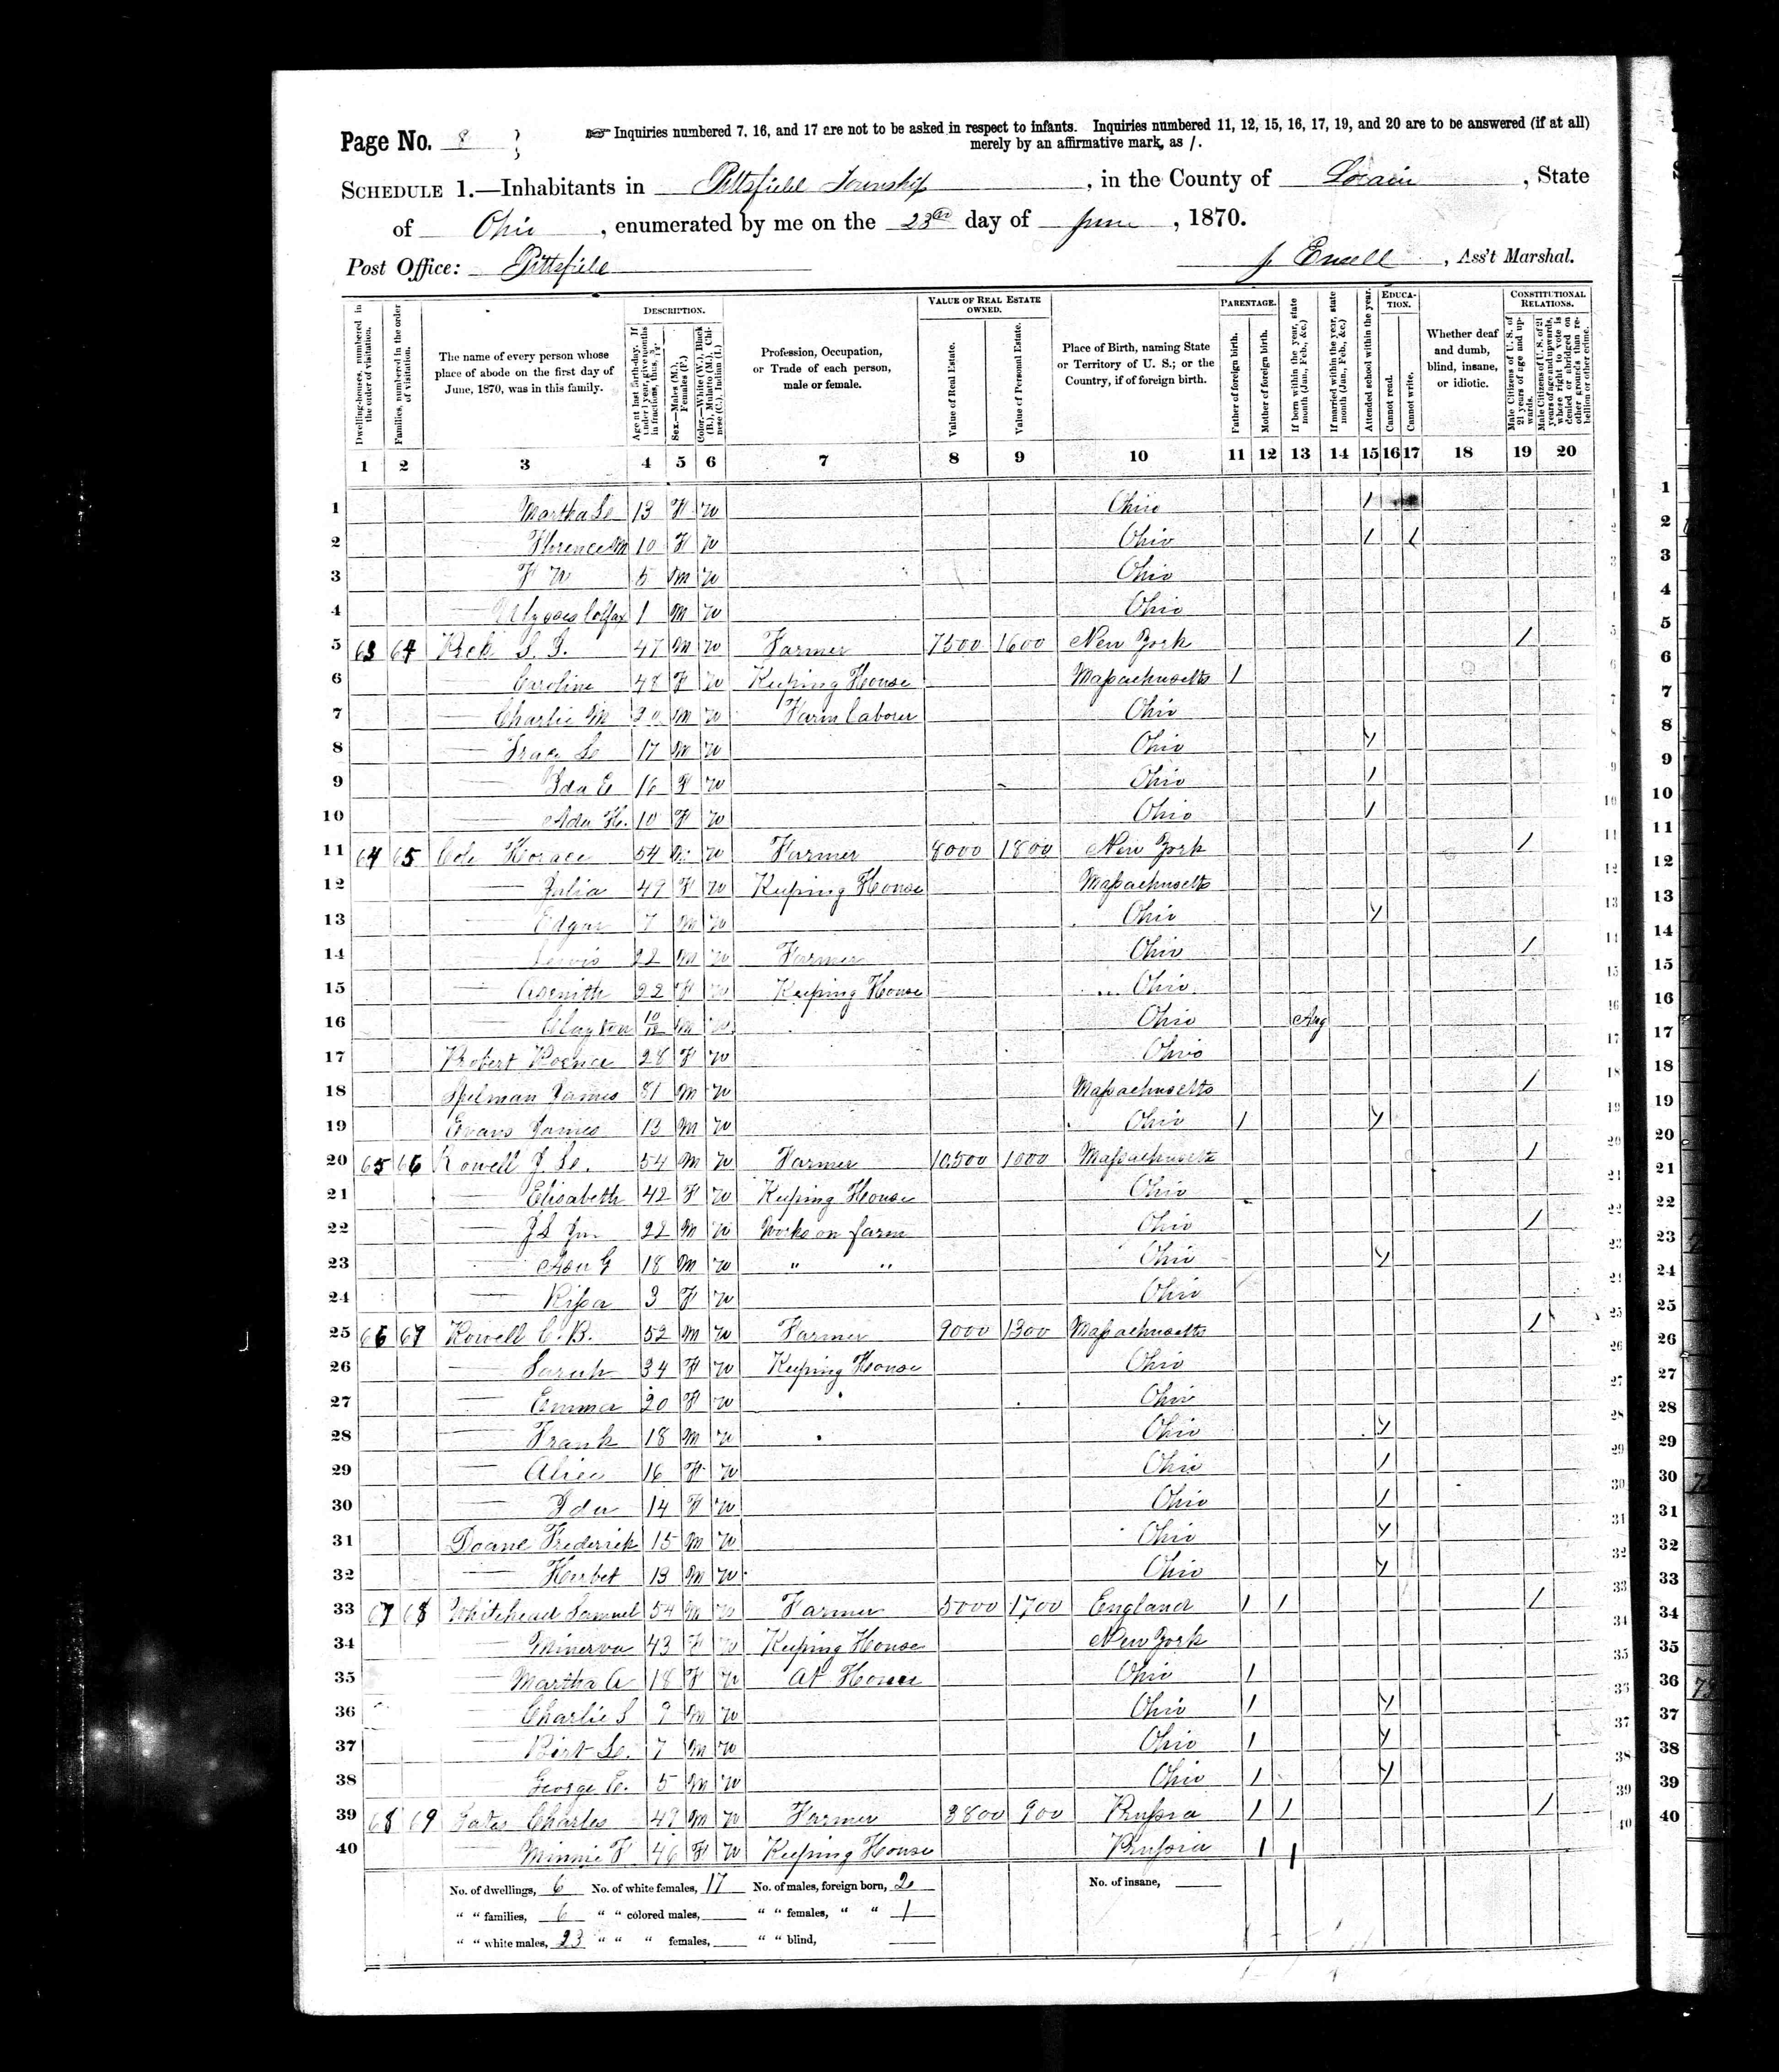 Page No. 8
Inquiries numbered 7, 16, and 17 are not to be asked in respect to infants. Inquiries numbered 11, 12, 15, 16, 17, 19, and 20 are to be answered (if at all)
merely by an affirmative mark, as /.
SCHEDULE 1.—Inhabitants in Pittsfield Township, in the County of Lorain, State
of Ohio, enumerated by me on the 23rd day of June, 1870.
Post Office: Pittsfield J Ensell, Ass't Marshal.
Dwelling-houses, numbered in the order of visitation.
Families, numbered in the order of visitation.
The name of every person whose place of abode on the first day of June, 1870, was in this family.
DESCRIPTION.
Age at last birth-day. If under 1 year, give months in fractions, thus, 3/12.
Sex.—Males (M.), Females (F.)
Color.—White (W.), Black (B.), Mulatto (M.), Chinese (C.), Indian (I.)
Profession, Occupation, or Trade of each person, male or female.
VALUE OF REAL ESTATE OWNED.
Value of Real Estate.
Value of Personal Estate.
Place of Birth, naming State or Territory of U. S.; or the Country, if of foreign birth.
PARENTAGE.
Father of foreign birth.
Mother of foreign birth.
If born within the year, state month (Jan., Feb., &c.)
If married within the year, state month (Jan., Feb., &c.)
Attended school within the year.
EDUCATION.
Cannot read.
Cannot write.
Whether deaf and dumb, blind, insane, or idiotic.
CONSTITUTIONAL RELATIONS.
Male Citizens of U. S. of 21 years of age and upwards.
Male Citizens of U. S. of 21 years of age and upwards, whose right to vote is denied or abridged on other grounds than rebellion or other crime.
1 2 3 4 5 6 7 8 9 10 11 12 13 14 15 16 17 18 19 20
1 — Martha 13 F W Ohio /
2 — Florence M 10 F W Ohio / /
3 — F W 5 M W Ohio
4 — Ulysses Colfax 1 M W Ohio
5 63 64 47 M W Farmer 7500 1600 New York /
6 — Caroline 48 F W Keeping House Massachusetts /
7 — Charlie M 20 M W Farm Laborer Ohio
8 — 17 M W Ohio /
9 — Ida E 16 F W Ohio /
10 — Ada H. 10 F W Ohio /
11 64 65 Cole Horace 54 M W Farmer 8000 1800 New York /
12 — Julia 49 F W Keeping House Massachusetts
13 — Edgar 7 M W Ohio /
14 — Lewis 22 M W Farmer Ohio /
15 — Asenith 22 F W Keeping House Ohio
16 — Clayton 10/12 M W Ohio Aug
17 Robert 28 F W Ohio
18 Spelman James 81 M W Massachusetts /
19 Evans James 13 M W Ohio / /
20 65 66 Rowell 54 M W Farmer 10500 1000 Massachusetts /
21 — Elisabeth 42 F W Keeping House Ohio
22 — 22 M W Works on farm Ohio /
23 — 18 M W " " Ohio /
24 — 3 F W Ohio
25 66 67 Rowell C. B. 52 M W Farmer 9000 1300 Massachusetts /
26 — Sarah 34 F W Keeping House Ohio
27 — Emma 20 F W Ohio
28 — Frank 18 M W Ohio /
29 — Alice 16 F W Ohio /
30 — Ida 14 F W Ohio /
31 Doane Frederick 15 M W Ohio /
32 — Herbet 13 M W Ohio /
33 67 68 Whitehead Samuel 54 M W Farmer 5000 1700 England / / /
34 — Minerva 43 F W Keeping House New York
35 — Martha A 18 F W At Home Ohio /
36 — Charlie S 9 M W Ohio / /
37 — Bert 7 M W Ohio / /
38 — George E. 5 M W Ohio / /
39 68 69 Charles 49 M W Farmer 3800 900 Prussia / / /
40 — Minnie F 46 F W Keeping House Prussia / /
No. of dwellings, 6 No. of white females, 17 No. of males, foreign born, 2 No. of insane,
" " families, 6 " " colored males, " " females, " " 1
" " white males, 23 " " " females, " " blind,